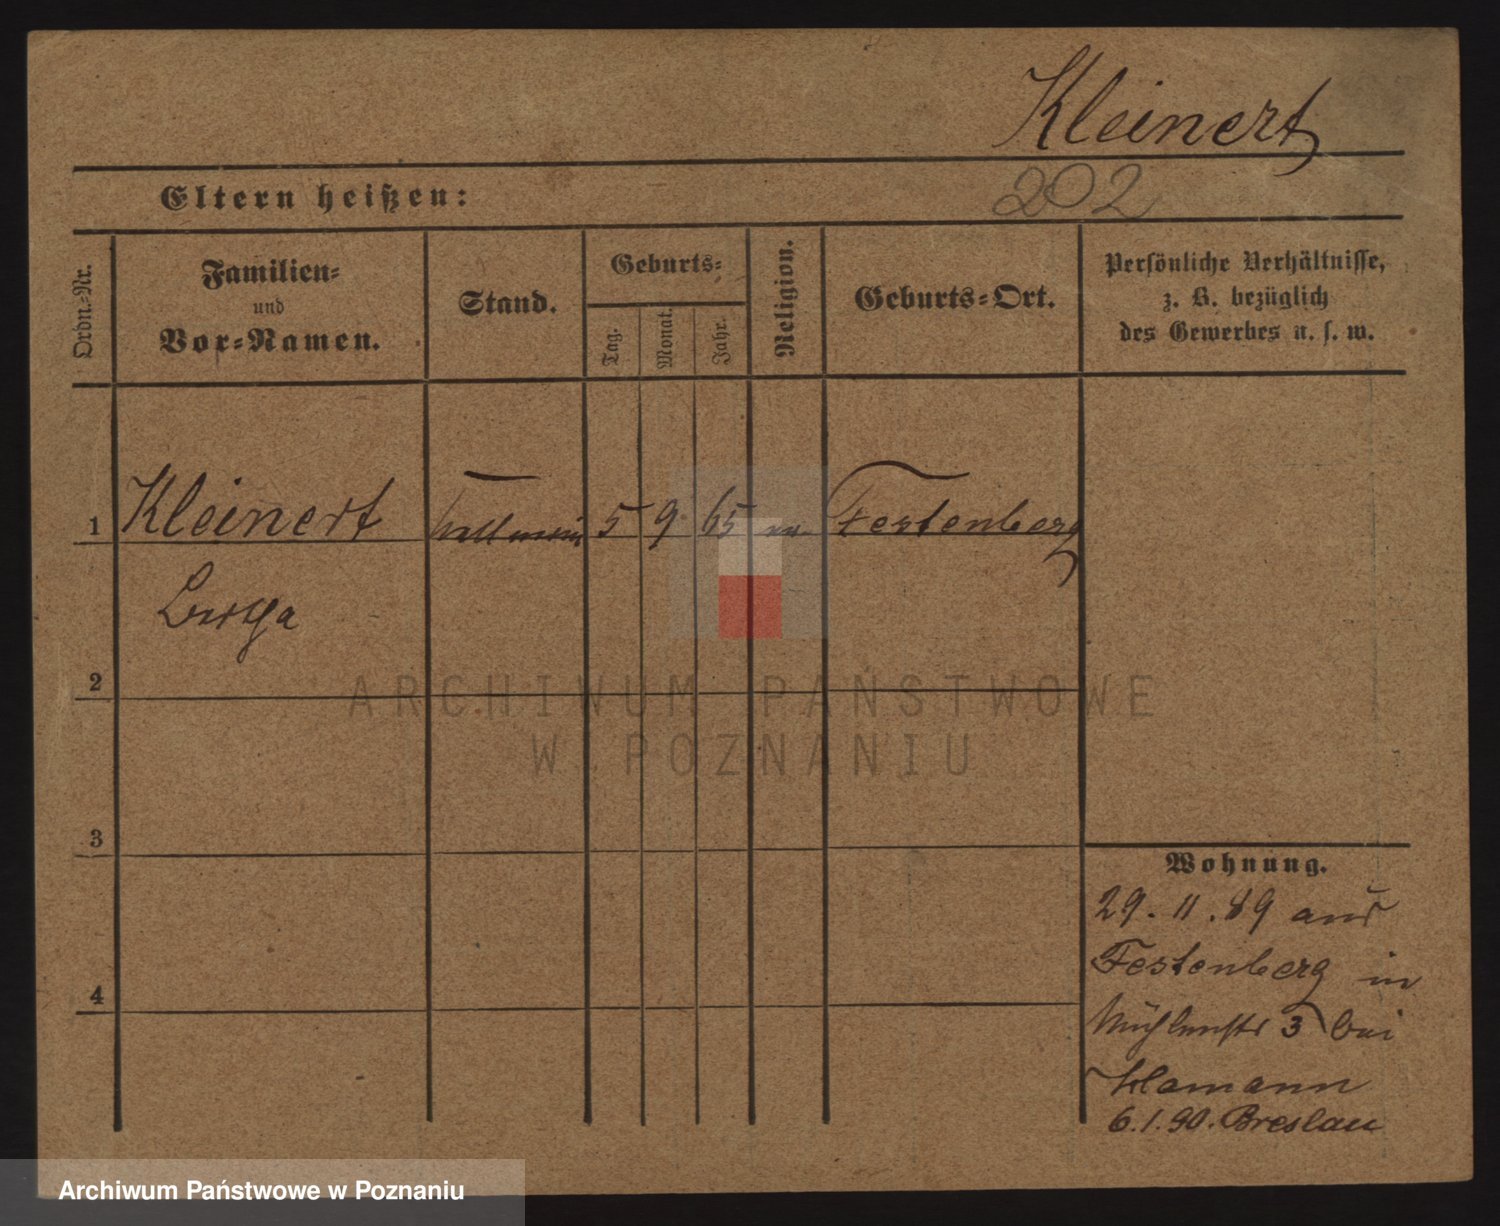 Kleinert
202
Eltern heißen:
Ordn.-Nr.
Familien-
und
Vor-Namen.
Stand.
Geburts-
Tag.
Monat.
Jahr.
Religion.
Geburts-Ort.
Persönliche Verhältnisse,
z. B. bezüglich
des Gewerbes u. s. w.
1 Kleinert 5 9 65 Festenberg
2
3
4
Wohnung.
29. 11. 89 aus
Festenberg in
Mühlenstr 3 bei
6.1.90. Breslau
ARCHIWUM PAŃSTWOWE
W POZNANIU
Archiwum Państwowe w Poznaniu